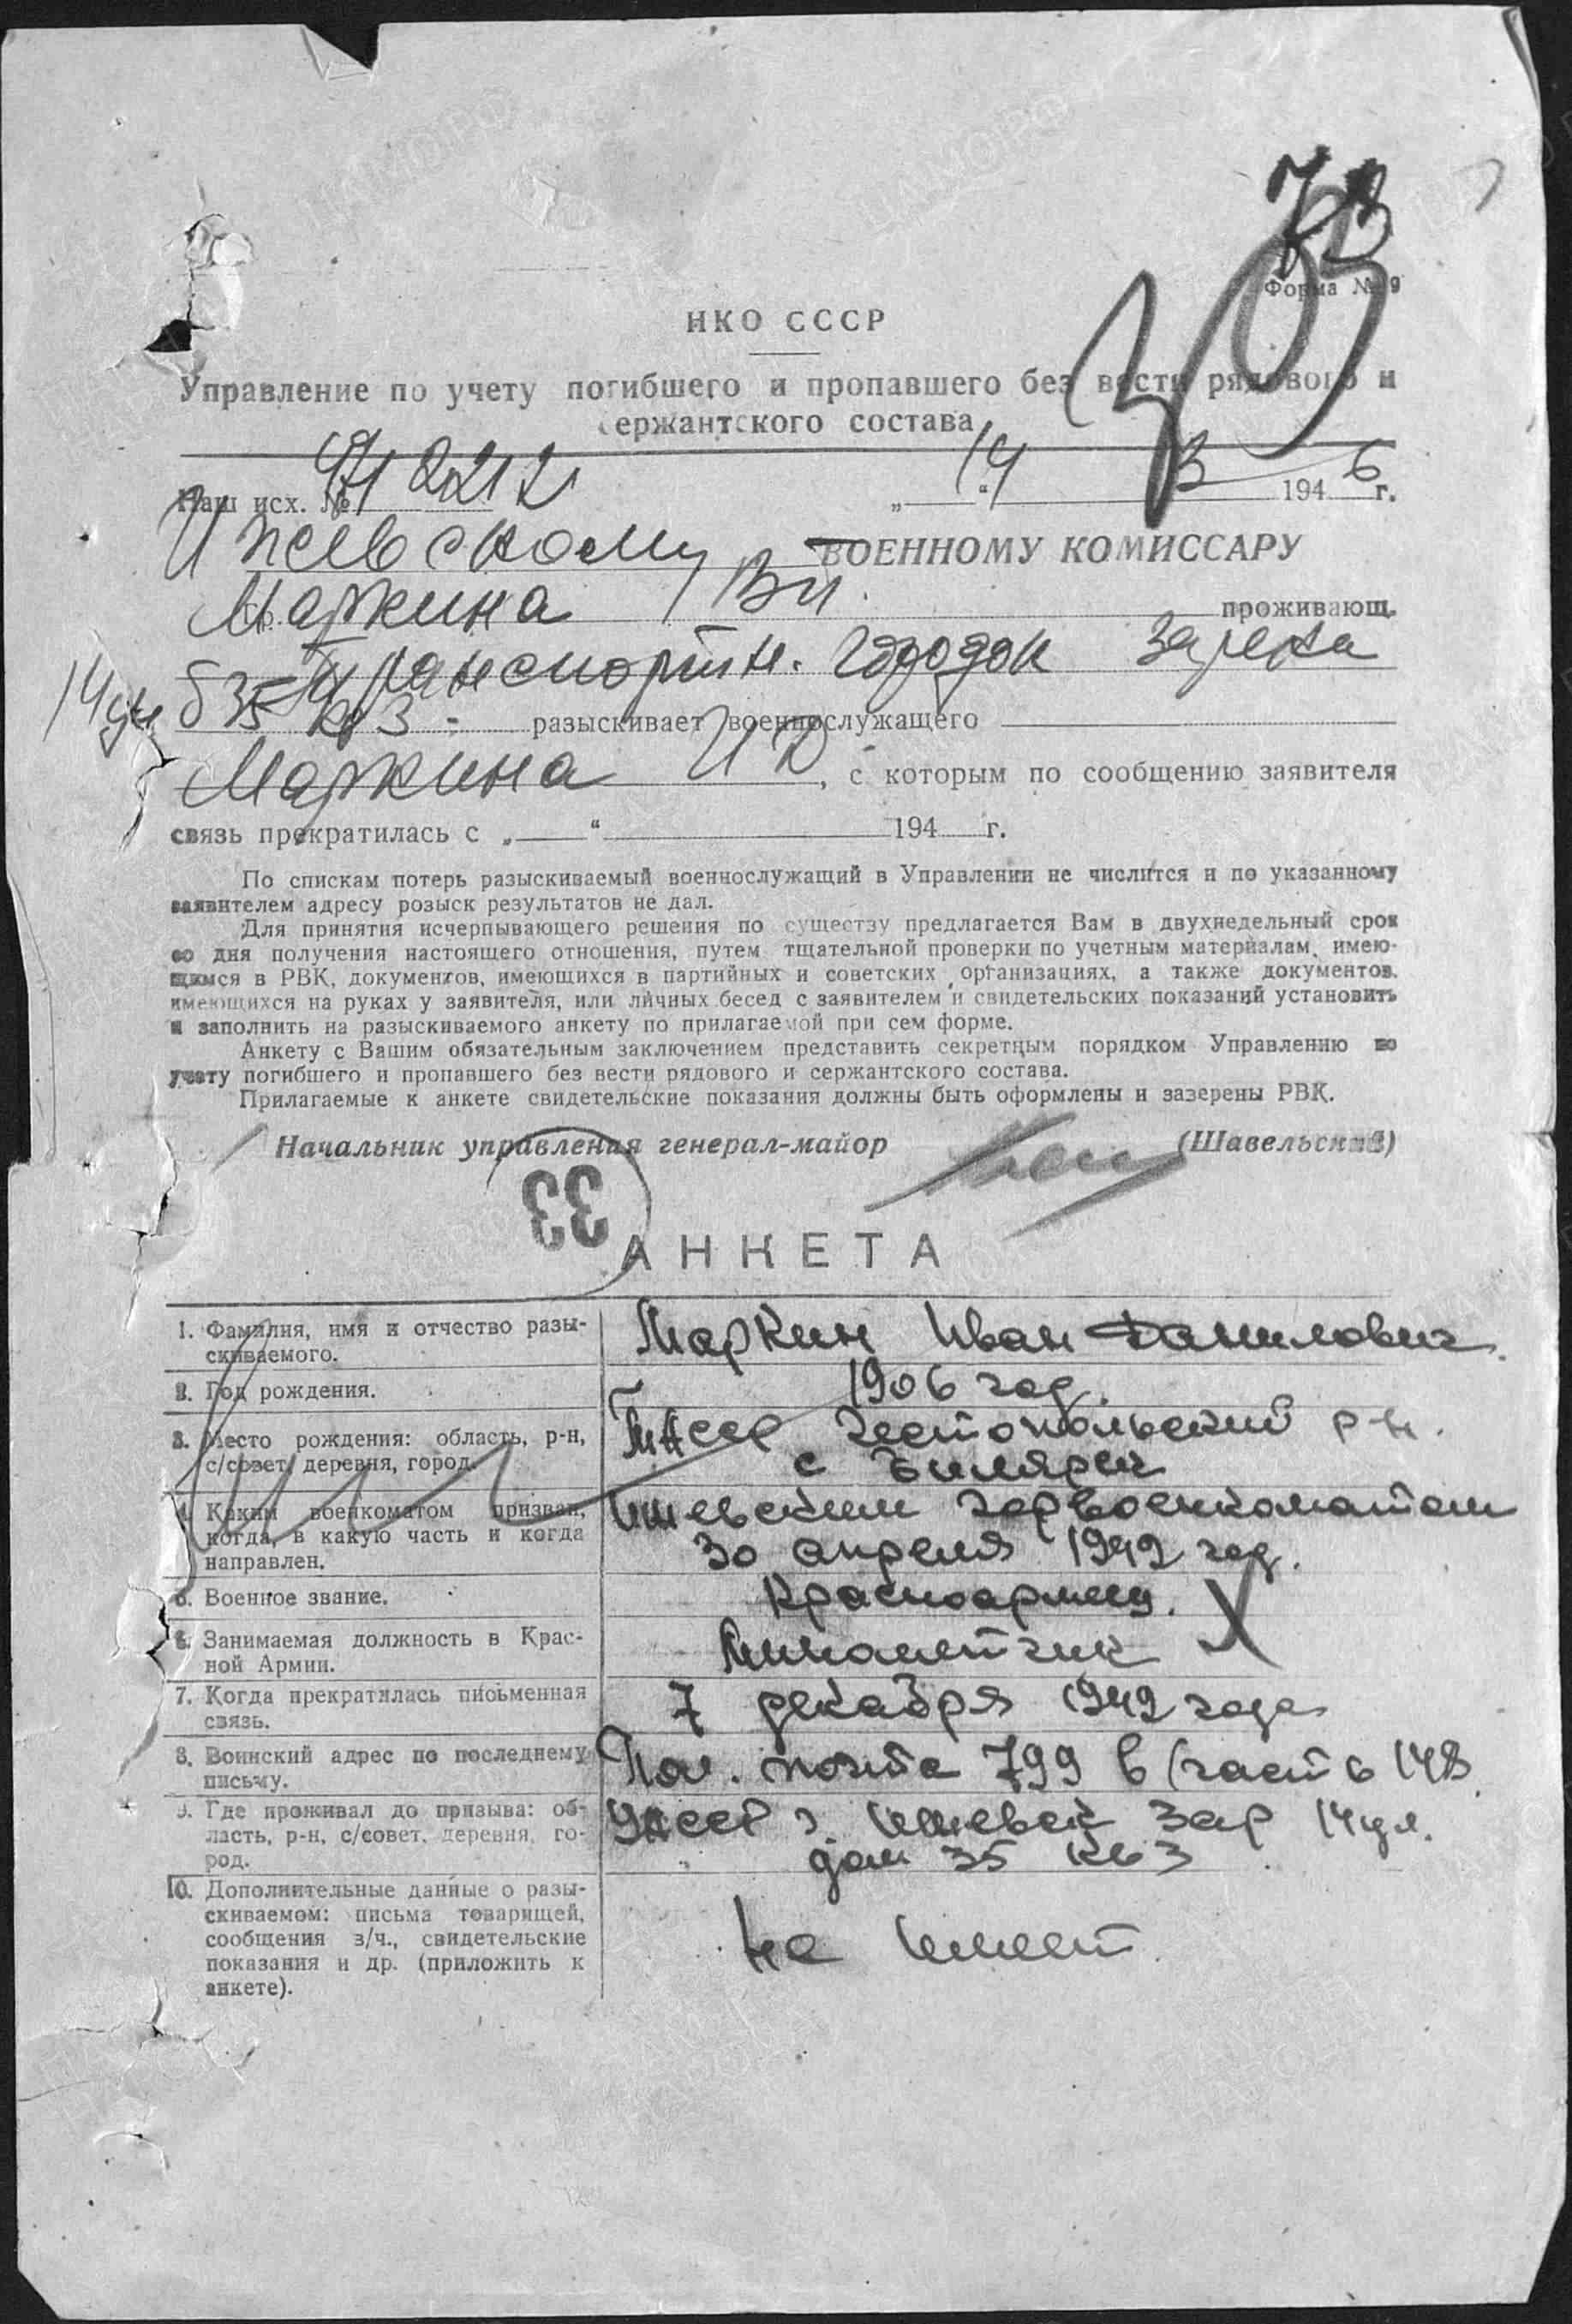 73
Форма № 9
НКО СССР
Управление по учету погибшего и пропавшего без вести рядового и
сержантского состава
Наш исх. № „14“ 3 1946 г.
Ижевскому ВОЕННОМУ КОМИССАРУ
Маркина проживающ.
Транспортн. городок Зарека
14 ул д 35 кв 3 разыскивает военнослужащего
Маркина И Д, с которым по сообщению заявителя
связь прекратилась с „ “ 194 г.
По спискам потерь разыскиваемый военнослужащий в Управлении не числится и по указанному
заявителем адресу розыск результатов не дал.
Для принятия исчерпывающего решения по существу предлагается Вам в двухнедельный срок
со дня получения настоящего отношения, путем тщательной проверки по учетным материалам, имею-
щимся в РВК, документов, имеющихся в партийных и советских организациях, а также документов,
имеющихся на руках у заявителя, или личных бесед с заявителем и свидетельских показаний установить
и заполнить на разыскиваемого анкету по прилагаемой при сем форме.
Анкету с Вашим обязательным заключением представить секретным порядком Управлению по
учету погибшего и пропавшего без вести рядового и сержантского состава.
Прилагаемые к анкете свидетельские показания должны быть оформлены и заверены РВК.
Начальник управления генерал-майор (Шавельский)
33
АНКЕТА
1. Фамилия, имя и отчество разы-
скиваемого.
Маркин Иван Данилович
2. Год рождения.
1906 год.
3. Место рождения: область, р-н,
с/совет, деревня, город.
ТАССР Чистопольский р-н.
с Билярск
4. Каким военкоматом призван,
когда, в какую часть и когда
направлен.
Ижевским горвоенкоматом
30 апреля 1942 год.
5. Военное звание.
Красноармеец.
6. Занимаемая должность в Крас-
ной Армии.
Минометчик
7. Когда прекратилась письменная
связь.
7 декабря 1942 года
8. Воинский адрес по последнему
письму.
Пол. почта 799 в/часть 148
9. Где проживал до призыва: об-
ласть, р-н, с/совет, деревня, го-
род.
УАССР г. Ижевск Зар 14 ул.
дом 35 кв 3
10. Дополнительные данные о разы-
скиваемом: письма товарищей,
сообщения з/ч., свидетельские
показания и др. (приложить к
анкете).
не имеет